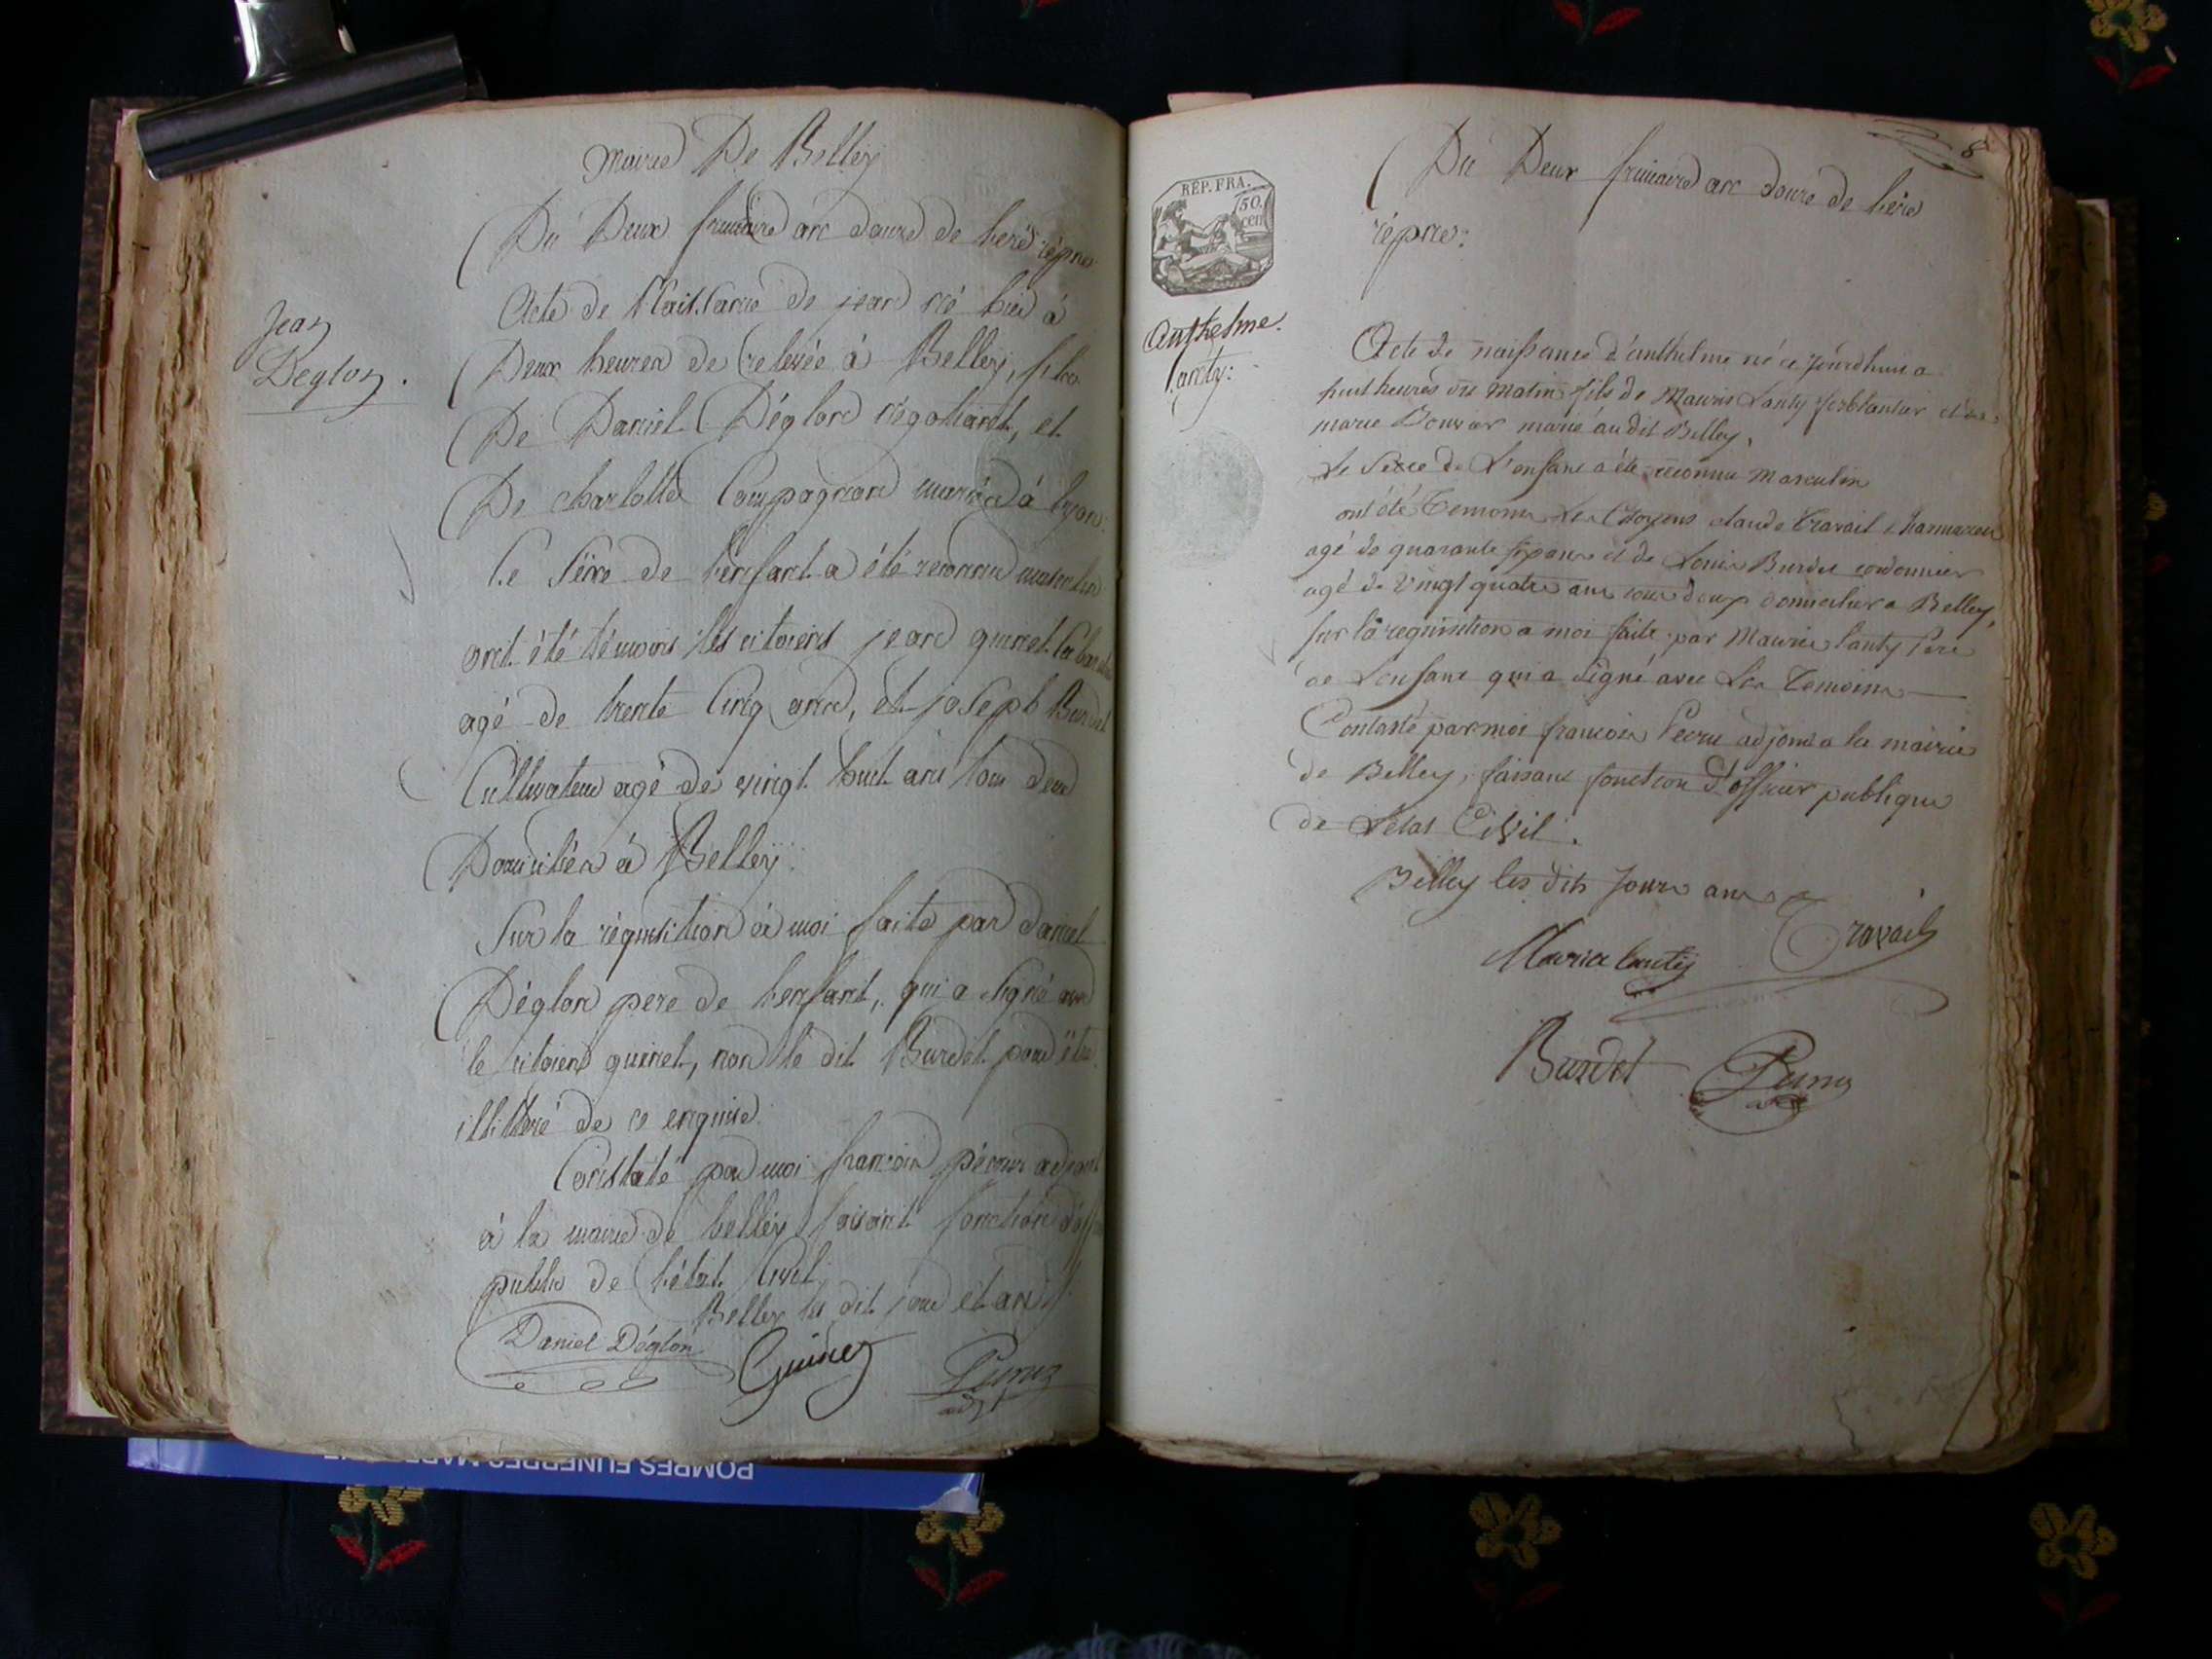 Mairie De Belley
Du Deux frimaire an douze de l'ere répne
Jean
Deglon.
Acte de Naissance de jean né hier à
Deux heures de relevée à Belley, fils
De Daniel Déglon négotiant, et
De charlotte Compagnon mariés à lyon.
Le Sexe de l'enfant a été reconnu masculin
ont été témoins les citoiens jean guinet
agé de trente Cinq ans, et joseph Burdet
Cultivateur agé de vingt huit ans tous deux
Domiciliés à Belley.
Sur la réquisition à moi faite par daniel
Déglon pere de l'enfant, qui a signé avec
le citoien guinet, non le dit Burdet pour être
illitteré de ce enquis.
Constaté par moi francois pécruz adjoint
à la mairie de belley faisant fonction
public de l'état Civil.
Belley les dit jour et an
Daniel Déglon
Guinet
8
REP. FRA.
50.
cen
Du Deux frimaire an douze de l'ère
répne.
Anthelme
lanty:
Acte de naissance d'anthelme né ce jourdhui a
huit heures du matin fils de Mauris Lanty ferblantier et de
marie Bouvier marié audit Belley,
Le Sexe de L'enfant a été reconnu masculin
ont été Temoins Les Citoyens claude Travail
agé de quarante six ans et de Louis Burdet cordonnier
agé de Vingt quatre ans tous deux domicilies a Belley,
sur la requisition a moi faite par Maurice lanty Père
de L'enfant qui a signé avec Les Temoins
Constaté par moi francois Pecru adjoint a la mairie
de Belley, faisant fonction d'officier publique
de L'etat Civil.
Belley les dits Jour an
Travail
Maurice lanty
Burdet
POMPES FUNEBRES